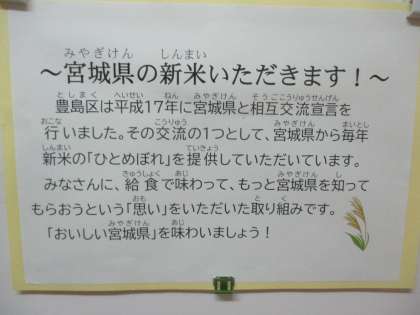 ～宮城県の新米いただきます！～
豊島区は平成17年に宮城県と相互交流宣言を
行いました。その交流の1つとして、宮城県から毎年
新米の「ひとめぼれ」を提供していただいています。
みなさんに、給食で味わって、もっと宮城県を知って
もらおうという「思い」をいただいた取り組みです。
「おいしい宮城県」を味わいましょう！